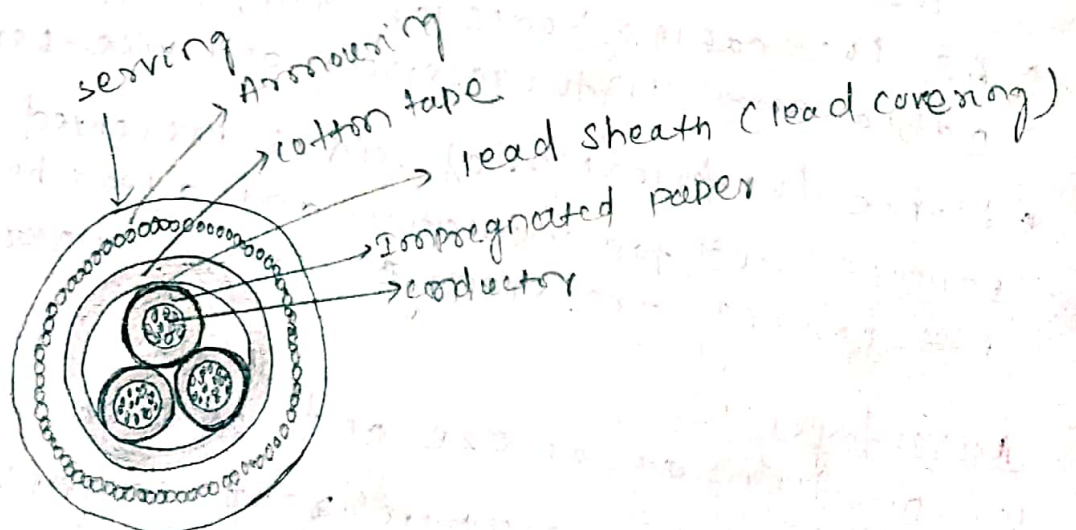 serving
Armouring
cotton tape
lead sheath (lead covering)
Impregnated paper
conductor